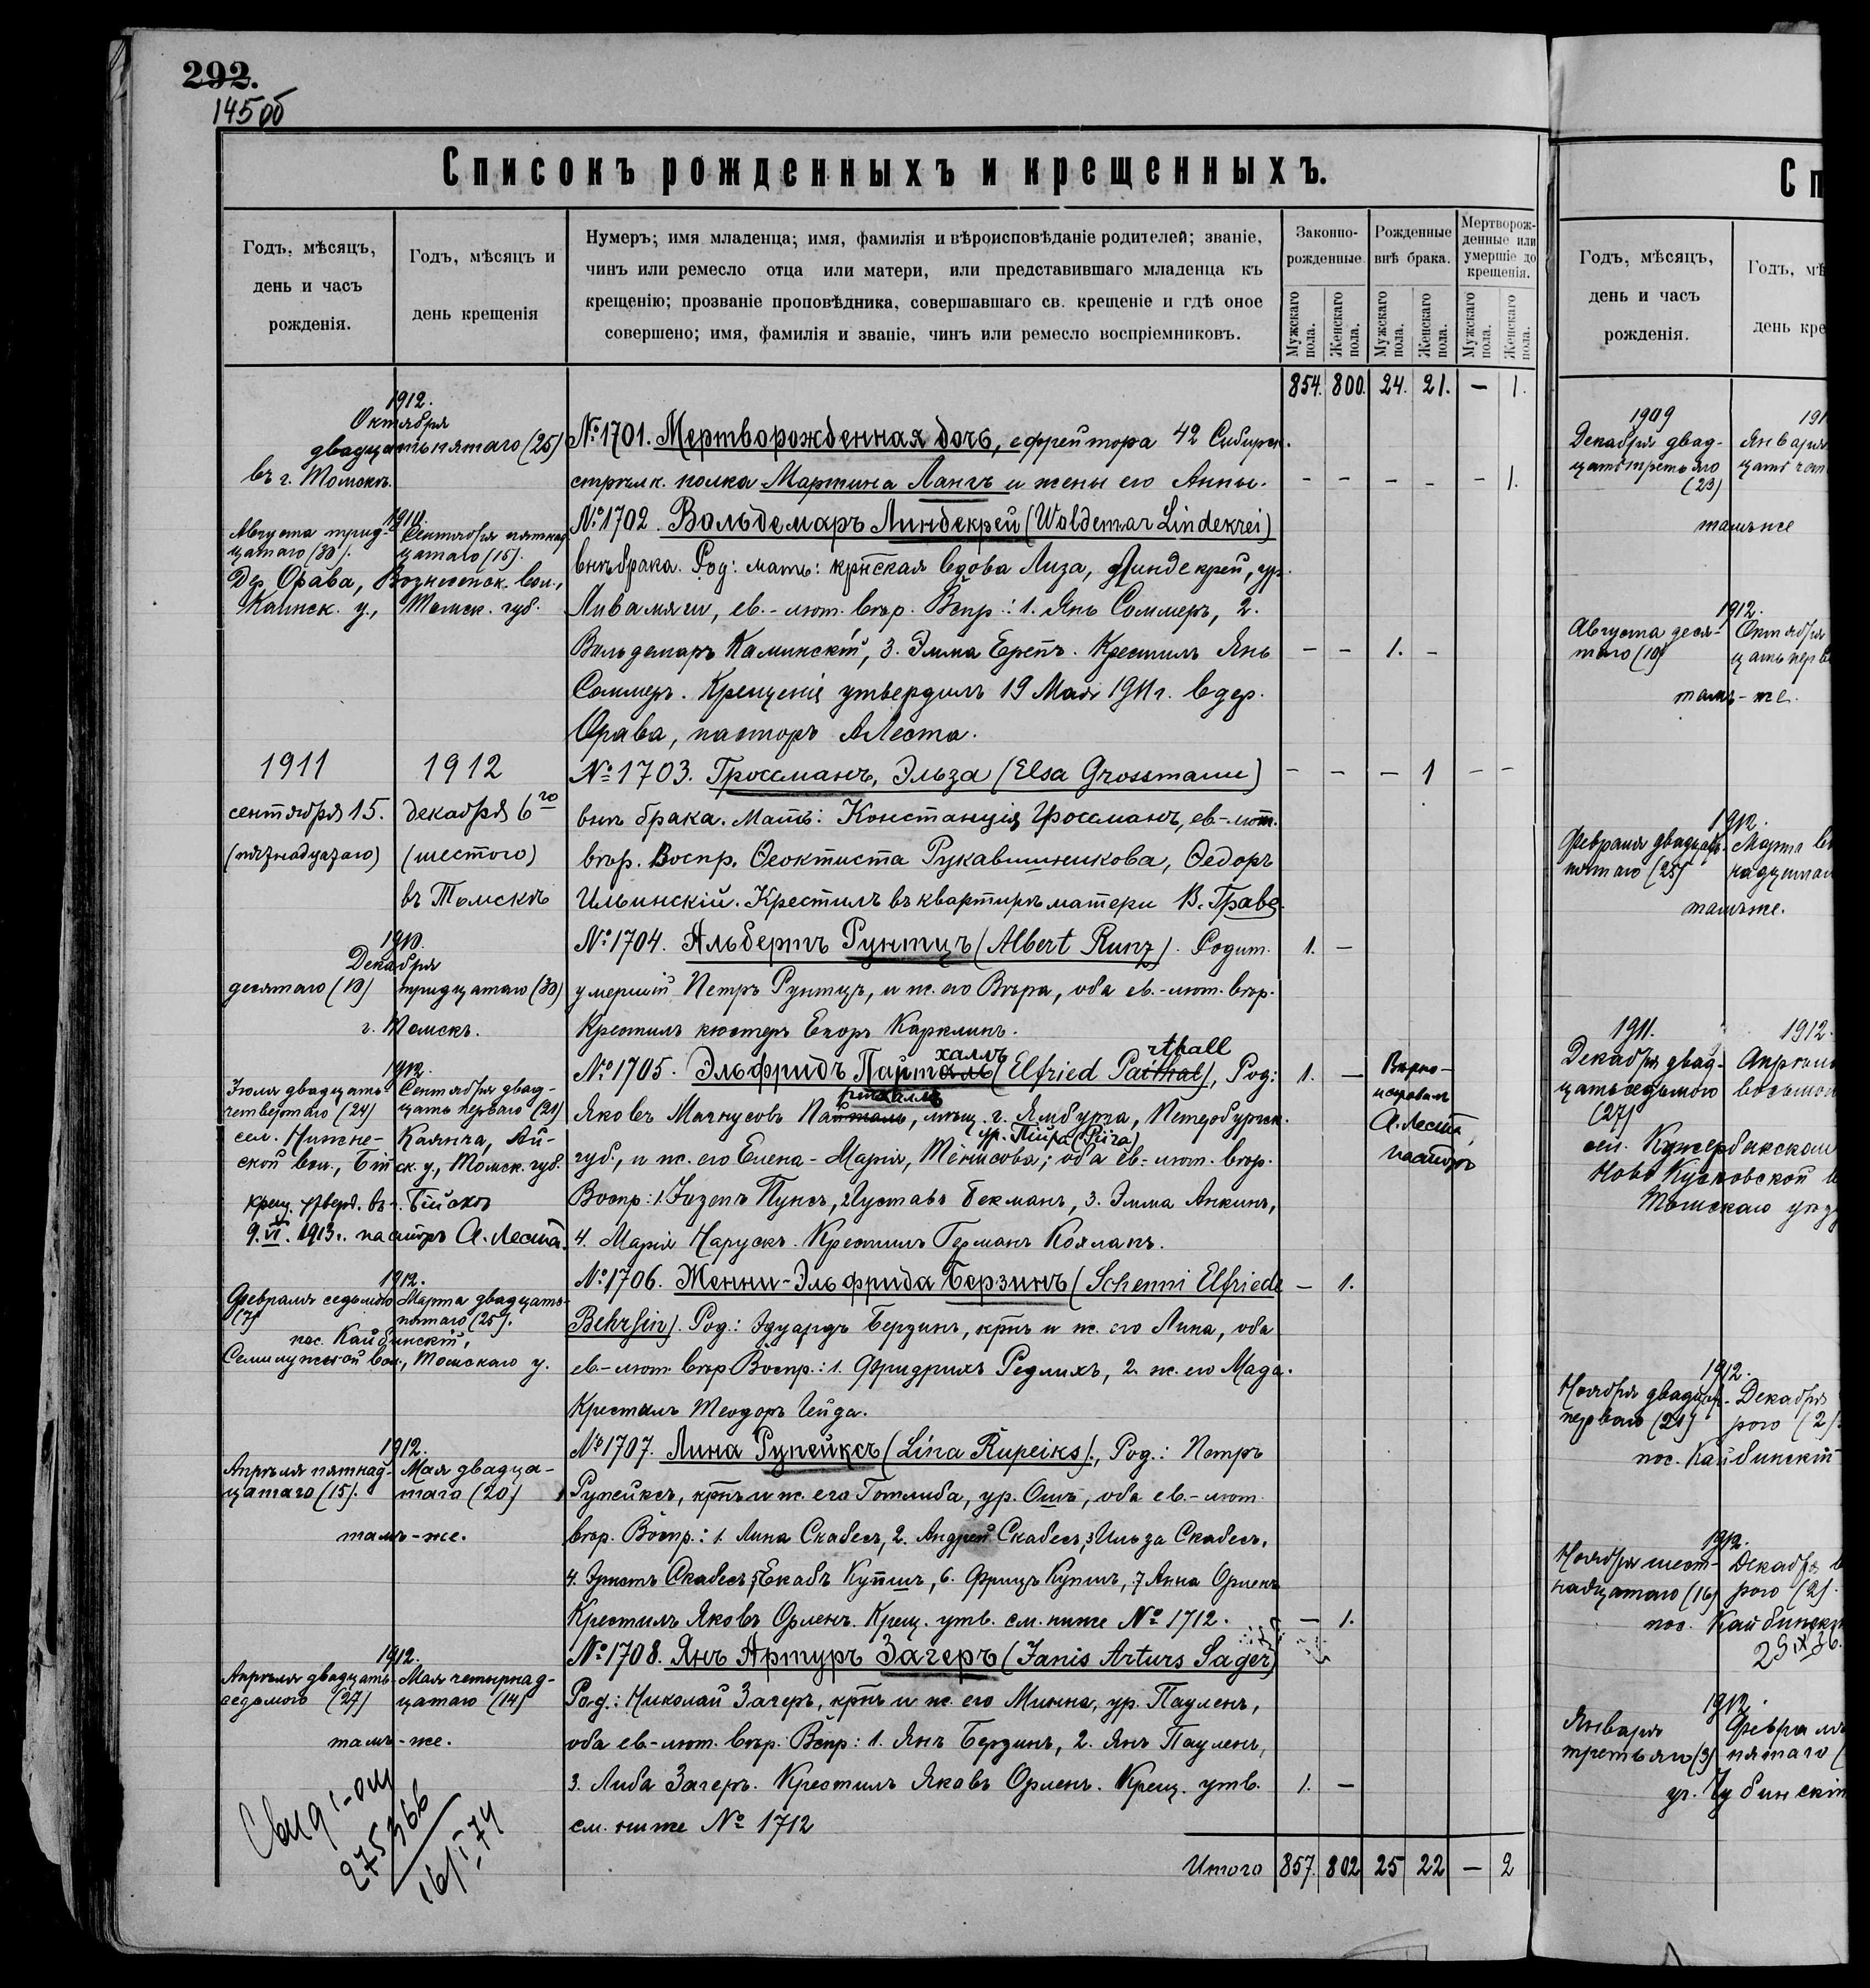 292.
145 об
Списокъ рожденныхъ и крещенныхъ.
Годъ, мѣсяцъ, день и часъ рожденія.
Годъ, мѣсяцъ и день крещенія
Нумеръ; имя младенца; имя, фамилія и вѣроисповѣданіе родителей; званіе,
чинъ или ремесло отца или матери, или представившаго младенца къ
крещенію; прозваніе проповѣдника, совершавшаго св. крещеніе и гдѣ оное
совершено; имя, фамилія и званіе, чинъ или ремесло воспріемниковъ.
Законно-рожденные.
Рожденные внѣ брака.
Мертворож-денные или умершіе до крещенія.
Мужскаго пола.
Женскаго пола.
Мужскаго пола.
Женскаго пола.
Мужскаго пола.
Женскаго пола.
854. 800. 24. 21. — 1.
1912.
Октября
двадцать пятаго (25)
въ г. Томскѣ.
№ 1701. Мертворожденная дочь, ефрейтора 42 Сибирск.
стрѣлк. полка Мартина Лангъ и жены его Анны. - - - - - 1.
1910.
Августа трид-
цатаго (30).
Сентября пятнад-
цатаго (15).
Дер Орава, Вознесенск. вол.,
Каинск. у., Томск. губ.
№ 1702. Вольдемаръ Линдекрей (Woldemar Lindekrei)
внѣ брака. Род: мать: крнская вдова Лиза, Линдекрей, ур.
Ливамяги, ев.-лют. вѣр. Вспр.: 1. Янъ Соммеръ, 2.
Вольдемаръ Каминскій, 3. Эмма Ерепъ. Крестилъ Янъ - - 1. -
Соммеръ. Крещеніе утвердилъ 19 Мая 1911 г. въ дер.
Орава, пасторъ А Леста.
1911
сентября 15.
(пятнадцатаго)
1912
декабря 6го
(шестого)
въ Томскѣ
№ 1703. Гроссманъ, Эльза (Elsa Grossmann) - - - 1 - -
внѣ брака. Мать: Констанція Гроссманъ, ев-лют.
вѣр. Воспр. Ѳеоктиста Рукавишникова, Ѳедоръ
Ильинскій. Крестилъ въ квартирѣ матери В. Граве.
1910.
Декабря
десятаго (10) тридцатаго (30)
г. Томскъ.
№ 1704. Альбертъ Рунтцъ (Albert Runz). Родит. 1. —
умершій Петръ Рунтцъ, и ж. его Вѣра, оба ев.-лют. вѣр.
Крестилъ кюстеръ Егоръ Карклинъ.
1912.
Іюля двадцать
четвертаго (24)
Сентября двад-
цать перваго (21)
сел. Нижне-Каянча, Ай-
ской вол., Бійск. у., Томск. губ.
крещ. утверд. въ г. Бійскѣ
9. VI. 1913 г. пасторъ А. Леста.
халлъ
rthall
№ 1705. Эльфридъ Парталь (Elfried Pathal), Род: 1. —
ртхаллъ
Яковъ Магнусовъ Пайталь, мѣщ. г. Ямбурга, Петербургск.
ур. Пійра (Piira)
губ., и ж. его Елена-Марія, Тенисова; оба ев-лют. вѣр.
Воспр: 1. Іозепъ Пунсъ, 2 Густавъ Бекманъ, 3. Эмма Анкинъ,
4. Марія Нарускъ. Крестилъ Германъ Кояланъ.
Вѣрно-
исправил
А. Леста,
пасторъ
1912.
Февраля седьмого
(7)
Марта двадцать-
пятаго (25).
пос. Кайбинскій,
Семилужной вол., Томскаго у.
№ 1706. Женни-Эльфрида Берзинъ (Schenni Elfriede — 1.
Behrsin). Род.: Эдуардъ Берзинъ, крнъ и ж. его Лина, оба
ев-лют вѣр Воспр.: 1. Фридрихъ Редлихъ, 2. ж. его Мада.
Крестилъ Теодоръ Гейда.
1912.
Апрѣля пятнад-
цатаго (15).
Мая двадца-
таго (20)
тамъ-же.
№ 1707. Лина Рупейксъ (Lina Rupeiks)., Род.: Петръ
Рупейксъ, крнъ и ж. его Готлиба, ур. Ошъ, оба ев.-лют.
вѣр. Воспр.: 1. Лина Скабесъ, 2. Андрей Скабесъ, 3 Ильза Скабесъ,
4. Эрнстъ Скабесъ, 5 Екабъ Купшъ, 6. Фрицъ Купшъ, 7 Анна Орленъ
Крестилъ Яковъ Орленъ. Крещ. утв. см. ниже № 1712. — 1.
1912.
Апрѣля двадцать
седьмого (27)
Мая четырнад-
цатаго (14)
тамъ-же.
№ 1708. Янъ Артуръ Загеръ (Janis Arturs Sager)
Род.: Николай Загеръ, крнъ и ж. его Минна, ур. Пауленъ,
оба ев-лют. вѣр. Вспр: 1. Янъ Берзинъ, 2. Янъ Пауленъ,
3. Либа Загеръ. Крестилъ Яковъ Орленъ. Крещ. утв. 1. —
см. ниже № 1712
275366
16/I 74
Итого 857. 802 25 22 — 2
Сп
Годъ, мѣсяцъ, день и часъ рожденія.
Годъ, мѣ
день кре
1909
Декабря двад-
цать третьяго
(23)
191
Января
тамъ же
1912.
Августа деся-
таго (10)
Октября
цать перв
тамъ-же.
1912.
Февраля двадцать-
пятаго (25)
Марта
надцатаг
тамъ же.
1911.
Декабря двад-
цать седьмого
(27)
1912.
Апрѣля
восьмого
Томскаго уѣзд
1912.
Ноября двадцать-
перваго (21)
Декабря
рого (2)
пос. Кайбинскій
1912.
Ноября шест-
надцатаго (16)
Декабря в
рого (2).
пос. Кайбинск
1912.
Января
третьяго (3)
Февраля
пятаго (